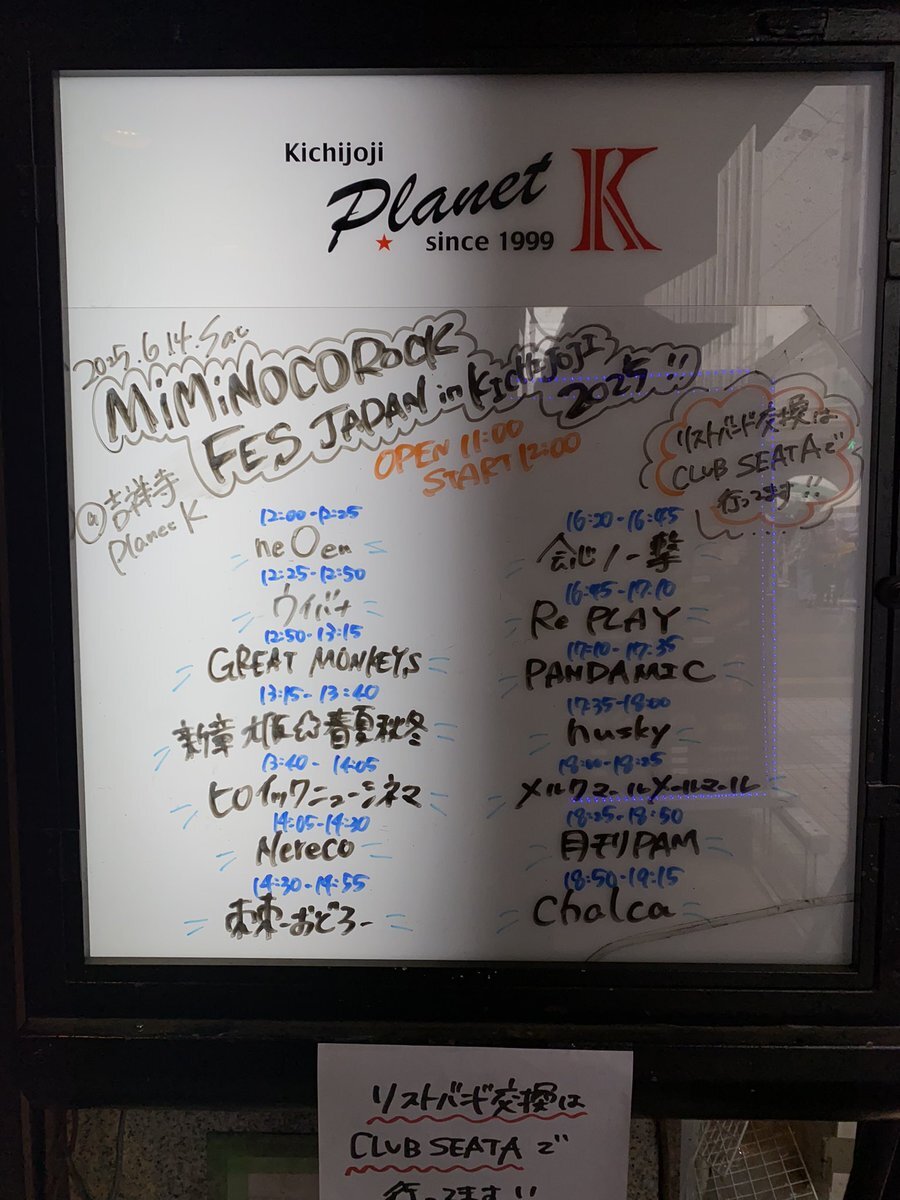 Kichijoji
Planet K
since 1999
2025.6.14.Sat
MiMiNOCOROCK
FES JAPAN in KICHIJOJI
2025!!
OPEN 11:00
START 12:00
リストバンド交換は
CLUB SEATAで
行ってます!!
@吉祥寺
Planet K
12:00-12:25
neOen
12:25-12:50
ウイバナ
12:50-13:15
GREAT MONKEYS
13:15-13:40
新章 春夏秋冬
13:40-14:05
ヒロイックニューシネマ
14:05-14:30
Nereco
14:30-14:55
棘-おどろ-
16:20-16:45
会心ノ一撃
16:45-17:10
Re PLAY
17:10-17:35
PANDAMIC
17:35-18:00
husky
18:00-18:25
メルクマールメールマール
18:25-18:50
月刊PAM
18:50-19:15
Chalca
リストバンド交換は
CLUB SEATAで
行ってます!!